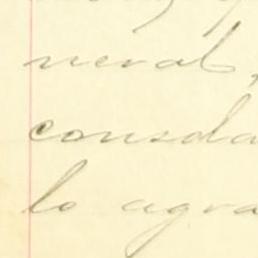 neral,
consola
lo agra